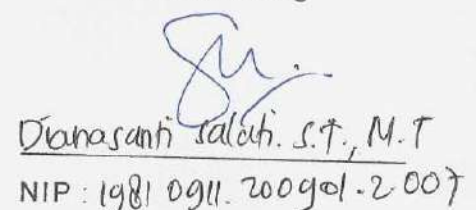 Dianasanti Salati. S.T., M.T
NIP : 19810911.200901.2.007